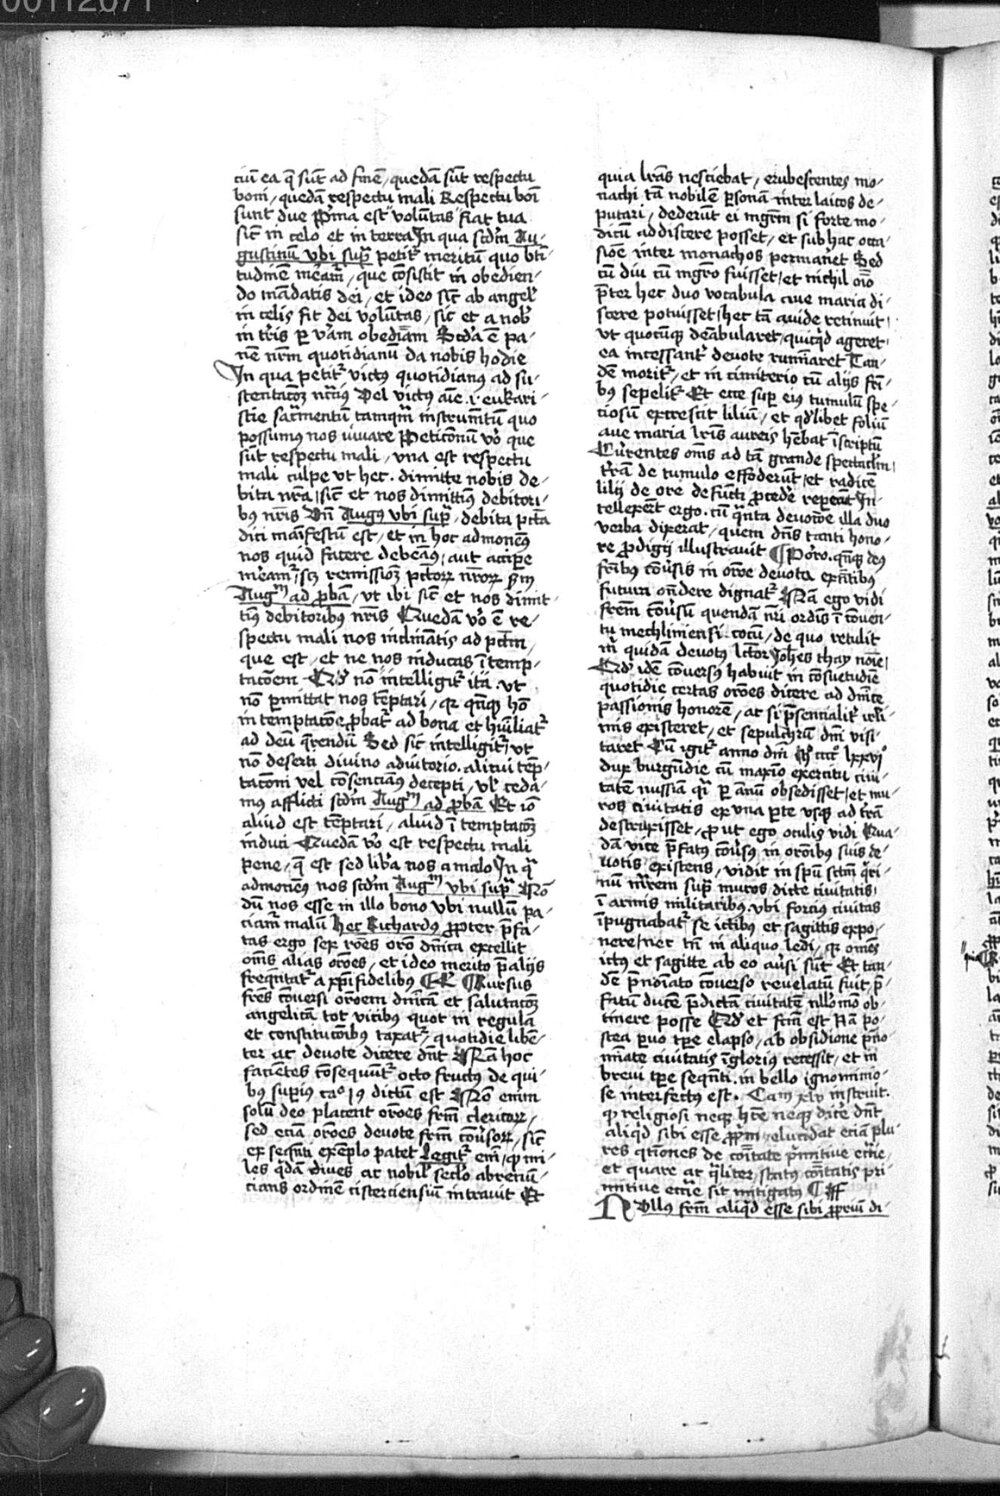 00112071
ciu͞ ea q̄ su͞t ad fine͞ / queda͞ su͞t respectu
boni / queda͞ respectu mali Respectu boi͞
sunt due P͛ma est volu͞tas fiat tua
sic͞ in celo et in terra In qua scd͞m Au-
gustinu͞ vbi sup͛ petit͛ meritu͞ quo bt͞i
tudine͞ / que co͞sistit in obedien-
do ma͞datis dei / et ideo sic͞ ab angel͛
in celis fit dei volu͞tas / sic͞ et a nob͛
in tr͞is obedia͞m Scd͞a e͞ pa-
ne͞ nr͞m quotidianu͞ da nobis hodie
In qua petit͛ victus quotidianus ad su-
stentac͞oꝫ Vel victus .i. eukari-
stie sacr͞mentu͞ tamqm͞ instrum͞tu͞ quo
possumus nos iuuare Peticionu͞ vo͛ que
su͞t respectu mali / vna est respectu
mali culpe vt hec . dimitte nobis de-
bita nr͞a / sic͞ et nos dimittim͛ debitori-
bꝫ nr͞is Vn͞ Augꝰ vbi sup͛ / debita pcc͞a
dici ma͞ifestu͞ est / et in hoc admonem͛
nos quid facere debeam͛ / aut accipe͛
/ scꝫ remissioꝫ
Augm͞ ad pba͞ / vt ibi sic͞ et nos dimit-
tim͛ debitoribus nr͞is Queda͞ vo͛ e͞ re-
spectu mali nos inclina͞tis ad pcc͞m /
que est / et ne nos inducas i͞ temp-
tac͞oem Qd͛ no͞ intelligit͛ ita . vt
no͞ p͛mittat nos te͞ptari / ho͞
in temptac͞oe p͛bat͛ ad bona et hu͞iliat͛
ad deu͞ q͛rendu͞ Sed sic͞ intelligit͛ / vt
no͞ deserti diuino adiutorio . alicui te͞p-
tac͞oni vel co͞sencia͞us decepti / vl͛ ceda-
mus afflicti scd͞m Augm͞ ad pba͞ Et io͞
aliud est te͞ptari / aliud i͞ temptac͞oꝫ
induci Queda͞ vo͛ est respectu mali
pene / q̄ est sed lib͛a nos a malo In q͛
admonem͛ nos scd͞m Augm͞ vbi sup͛ No͞
du͞ nos esse in illo bono vbi nullu͞ pa-
ciam͛ malu͞ hec Richardus Propter p͛fa-
tas ergo sex ro͞es oro͞ dn͞ica excellit
om͞s alias oro͞es / et ideo merito p͛ alijs
freque͞tat͛ a xp͞i fidelibus Rursus
fr͞es co͞uersi oroem dn͞ica͞ et salutac͞oꝫ
angelica͞ tot vicibus quot in regula
et constitutio͞ibꝫ taxat͛ / quotidie libe͞-
ter ac deuote dicere dn͞t Na͞ hoc
facie͞tes co͞sequu͞t͛ octo fructus de qui-
bꝫ sup͛ius dictu͞ est No͞ enim
solu͞ deo placent oro͞es fr͞m clericoꝝ /
sed ecia͞ oro͞es deuote fr͞m co͞u͛soꝝ / sic͞
ex seque͞nti exe͞plo patet Legit͛ em͞ / q̄ mi-
les q͛da͞ diues ac nobil͛ sc͞lo abrenu͞-
cians ordine͞ cisterciensiu͞ intrauit Et
quia lr͞as nesciebat / erubescentes mo-
nachi ta͞ nobile͞ p͛sona͞ inter laicos de-
putari / dederu͞t ei mgr͞m si forte mo-
dicu͞ addiscere posset / et sub hac occa-
sio͞e inter monachos permaneret Sed
cu͞ diu cu͞ mgr͞o fuisset / et nichil oi͞o
p͛ter hec duo vocabula aue maria di-
scere potuisset / hec ta͞ auide retinuit /
vt quocu͞q̄ dea͞bularet / quicq͛d ageret /
ea incessant͛ deuote rumi͞aret Tan-
de͞ morit͛ / et in cimiterio cu͞ alijs fr͞i-
bꝫ sepelit͛ Et ecce sup͛ eius tumulu͞ spe-
ciosu͞ excrescit liliu͞ / et q͛dlibet foliu͞
aue maria lr͞is aureis he͞bat i͞scriptu͞
Currentes om͞s ad ta͞ grande spectacl͞m /
tr͞am de tumulo effoderu͞t / et radice͞
lilij de ore defu͞cti p͛cede͛ Jn-
tellexeru͞t ergo . cu͞ q͛nta deuoc͞oe illa duo
verba dixerat / quem dn͞s tanti hono-
re p͛digij illustrauit Porro .
fr͞ibus co͞u͛sis in oroe deuota
futura on͞dere dignat͛ Na͞ ego vidi
fr͞em co͞u͛su͞ quenda͞ nr͞i ordi͞s i͞ conue͞-
tu mechliniensi . cocu͞ / de quo retulit
m͛ quida͞ deuotus lc͞tor Joh͞es thay noi͞e /
Qd͛ ide͞ co͞uersus habuit in co͞suetudine͞
quotidie certas oro͞es dicere ad dn͞ice
passionis honore͞ / ac si p͛sentialit͛
existeret / et sepulchru͞ dn͞i visi-
taret Cu͞ igit͛ anno dn͞i
dux burgu͞die cu͞ maxi͞o exercitu ciui-
tate͞ nussia p͛ annu͞ obsedisset / et mu-
ros ciuitatis ex vna p͛te vsq̄ ad tr͞a͞
destruxisset / p͛ut ego oculis vidi Qua-
da͞ vice p͛fatus co͞u͛sus in oro͞ibus suis de-
uotis existens / vidit in sp͞u
sup͛ muros dicte ciuitatis /
i͞ armis militaribꝫ . vbi forcius ciuitas
i͞pugnabat͛ se ictibꝫ et sagittis expo-
nere / nec tn͞ in aliquo ledi / q͛ om͞es
ictus et sagitte ab eo au͛si su͞t Et tan-
de͞ p͛noi͞ato co͞uerso reuelatu͞ fuit / p͛-
fatu͞ duce͞ p͛dicta͞ ciuitate͞ nllo͞mo͞ ob-
tinere posse Qd͛ et fc͞m est Na͞ po-
stea p͛uo tp͞e elapso / ab obsidione p͛no-
mi͞ate ciuitatis i͞glorius recessit / et in
breui tp͞e seque͞nti . in bello ignominio-
se interfectus est . Cam xlv instruit .
q̄ religiosi neq̄ neq̄ dn͞t
aliq͛d sibi esse p͛p͛m / elucidat ecia͞ plu-
res qt͞iones de co͞itate p͛mitiue ecc͞ie /
et quare ac q͛liter status co͞itatis pri-
mitiue ecc͞ie sit mitigatus
Nullus fr͞m aliq͛d esse sibi p͛priu͞ di-